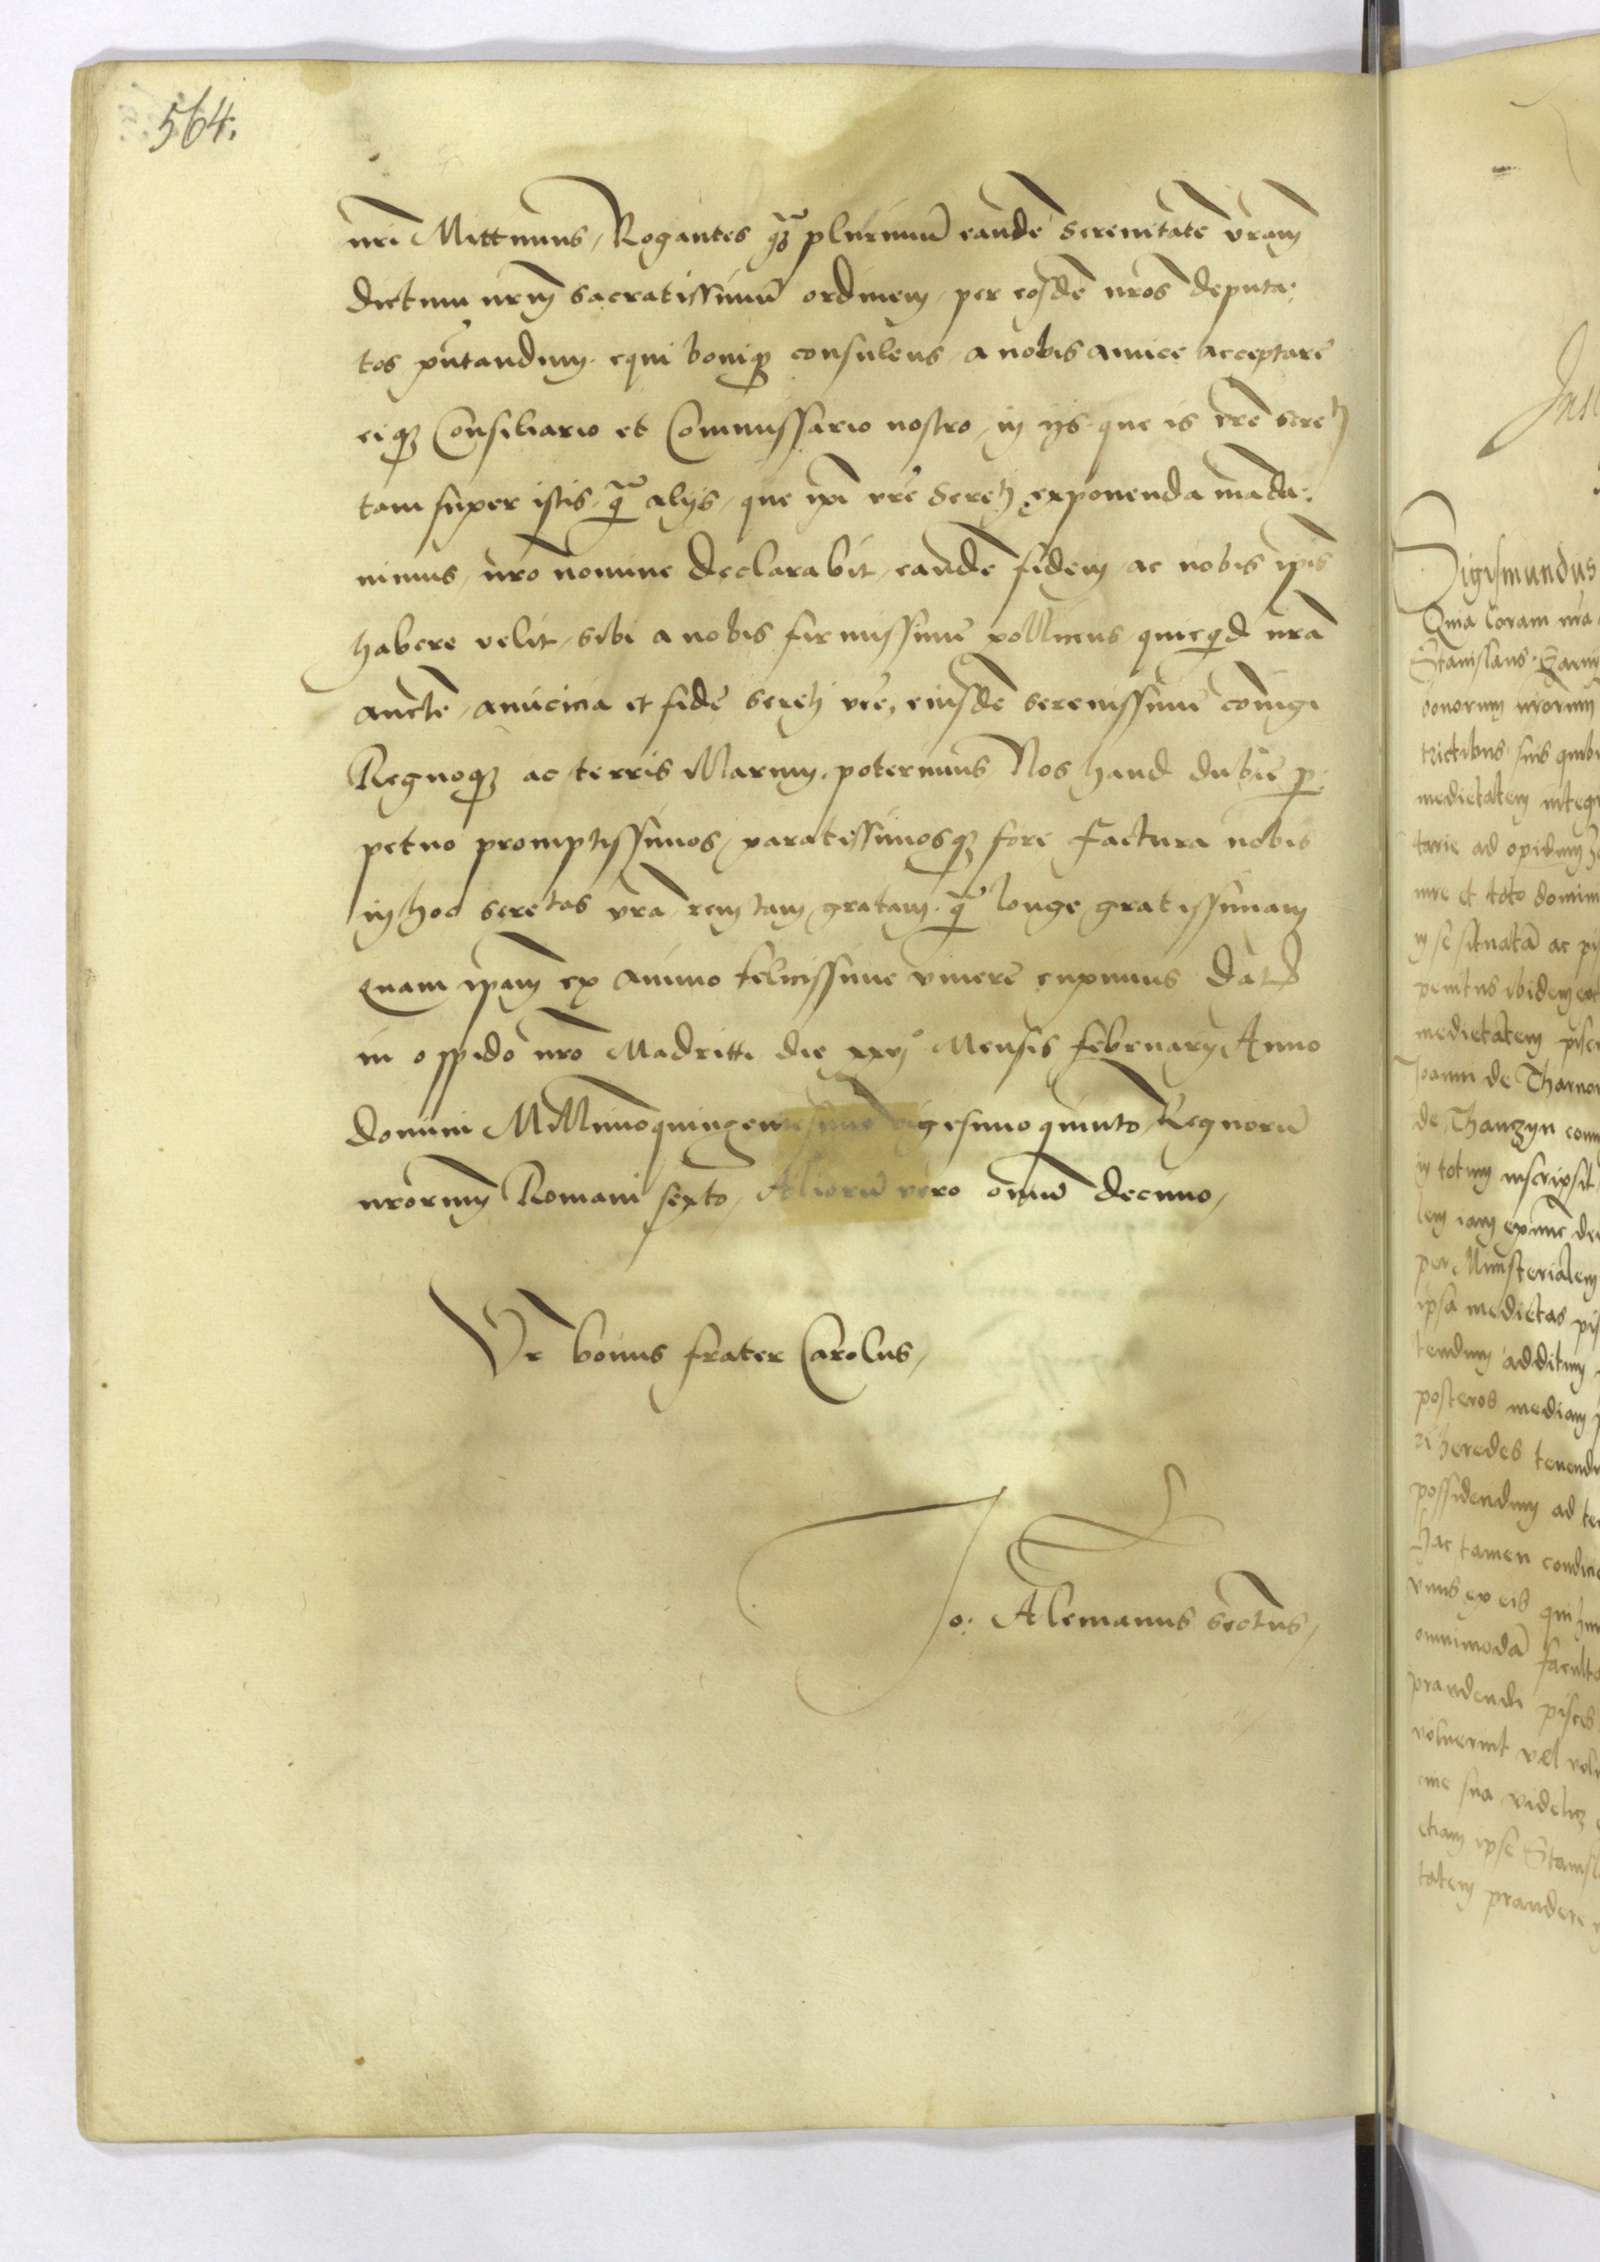 564.
nri Mittimus, Rogantes qꝫ plurimū eandē Serenitatē vram
dictum nrm sacratissimū ordinem, per eosdē nros deputa:
tos pñtandum. equi boniqꝫ consulens, a nobis amice acceptare
eiqꝫ Consiliario et Commissario nostro, in ijs que is vrē Sereti
tam super istis, qꝫ alijs, que ipi vrē Sereti exponenda mada:
uimus, nro nomine declarabit, eandē fidem ac nobis ipis
habere velit, sibi a nobis firmissimē pollicens, quicqd nra
aucte, amicicia et fide Sereti vrē, eiusdē serenissimē coniugi
Regnoqꝫ ac terris Marium, poterimus Nos haud dubiē p
petuo promptissimos, paratissimosqꝫ fore factura nobis
in hoc seretas vra rem tam gratam, qꝫ longe gratissimam
Quam ipam ex animo felicissime viuere cupimus Datū
in oppido nro Madritti die xxvj° Mensis februarij Anno
domini Millimoquingentesimo vigesimo quinto, Regnorū
nrorum Romani sexto, Aliorū vero omniū decimo,
Vr bonus frater Carolus,
Jo: Alemanus sectus,
Sigismundus
Quia Coram nra
Stanislaus
bonorum nrorum
trictibus suis quib
medietatem integr
tarie ad opidum
iure et toto domin
in se situatā ac pi
penitus ibidem
medietatem pisc
Joanni de Tharno
de Thanzyn
in totum inscripsit
per Ministerialem
ipsa medietas pis
tendum additum
posteros mediam
heredes tenend
possidendum ad te
Hac tamen condic
vnus ex eis qui
omnimodā faculta
prandendi pisces
voluerint vel
sua videlicꝫ
etiam ipse Stanisl
tatem prandere